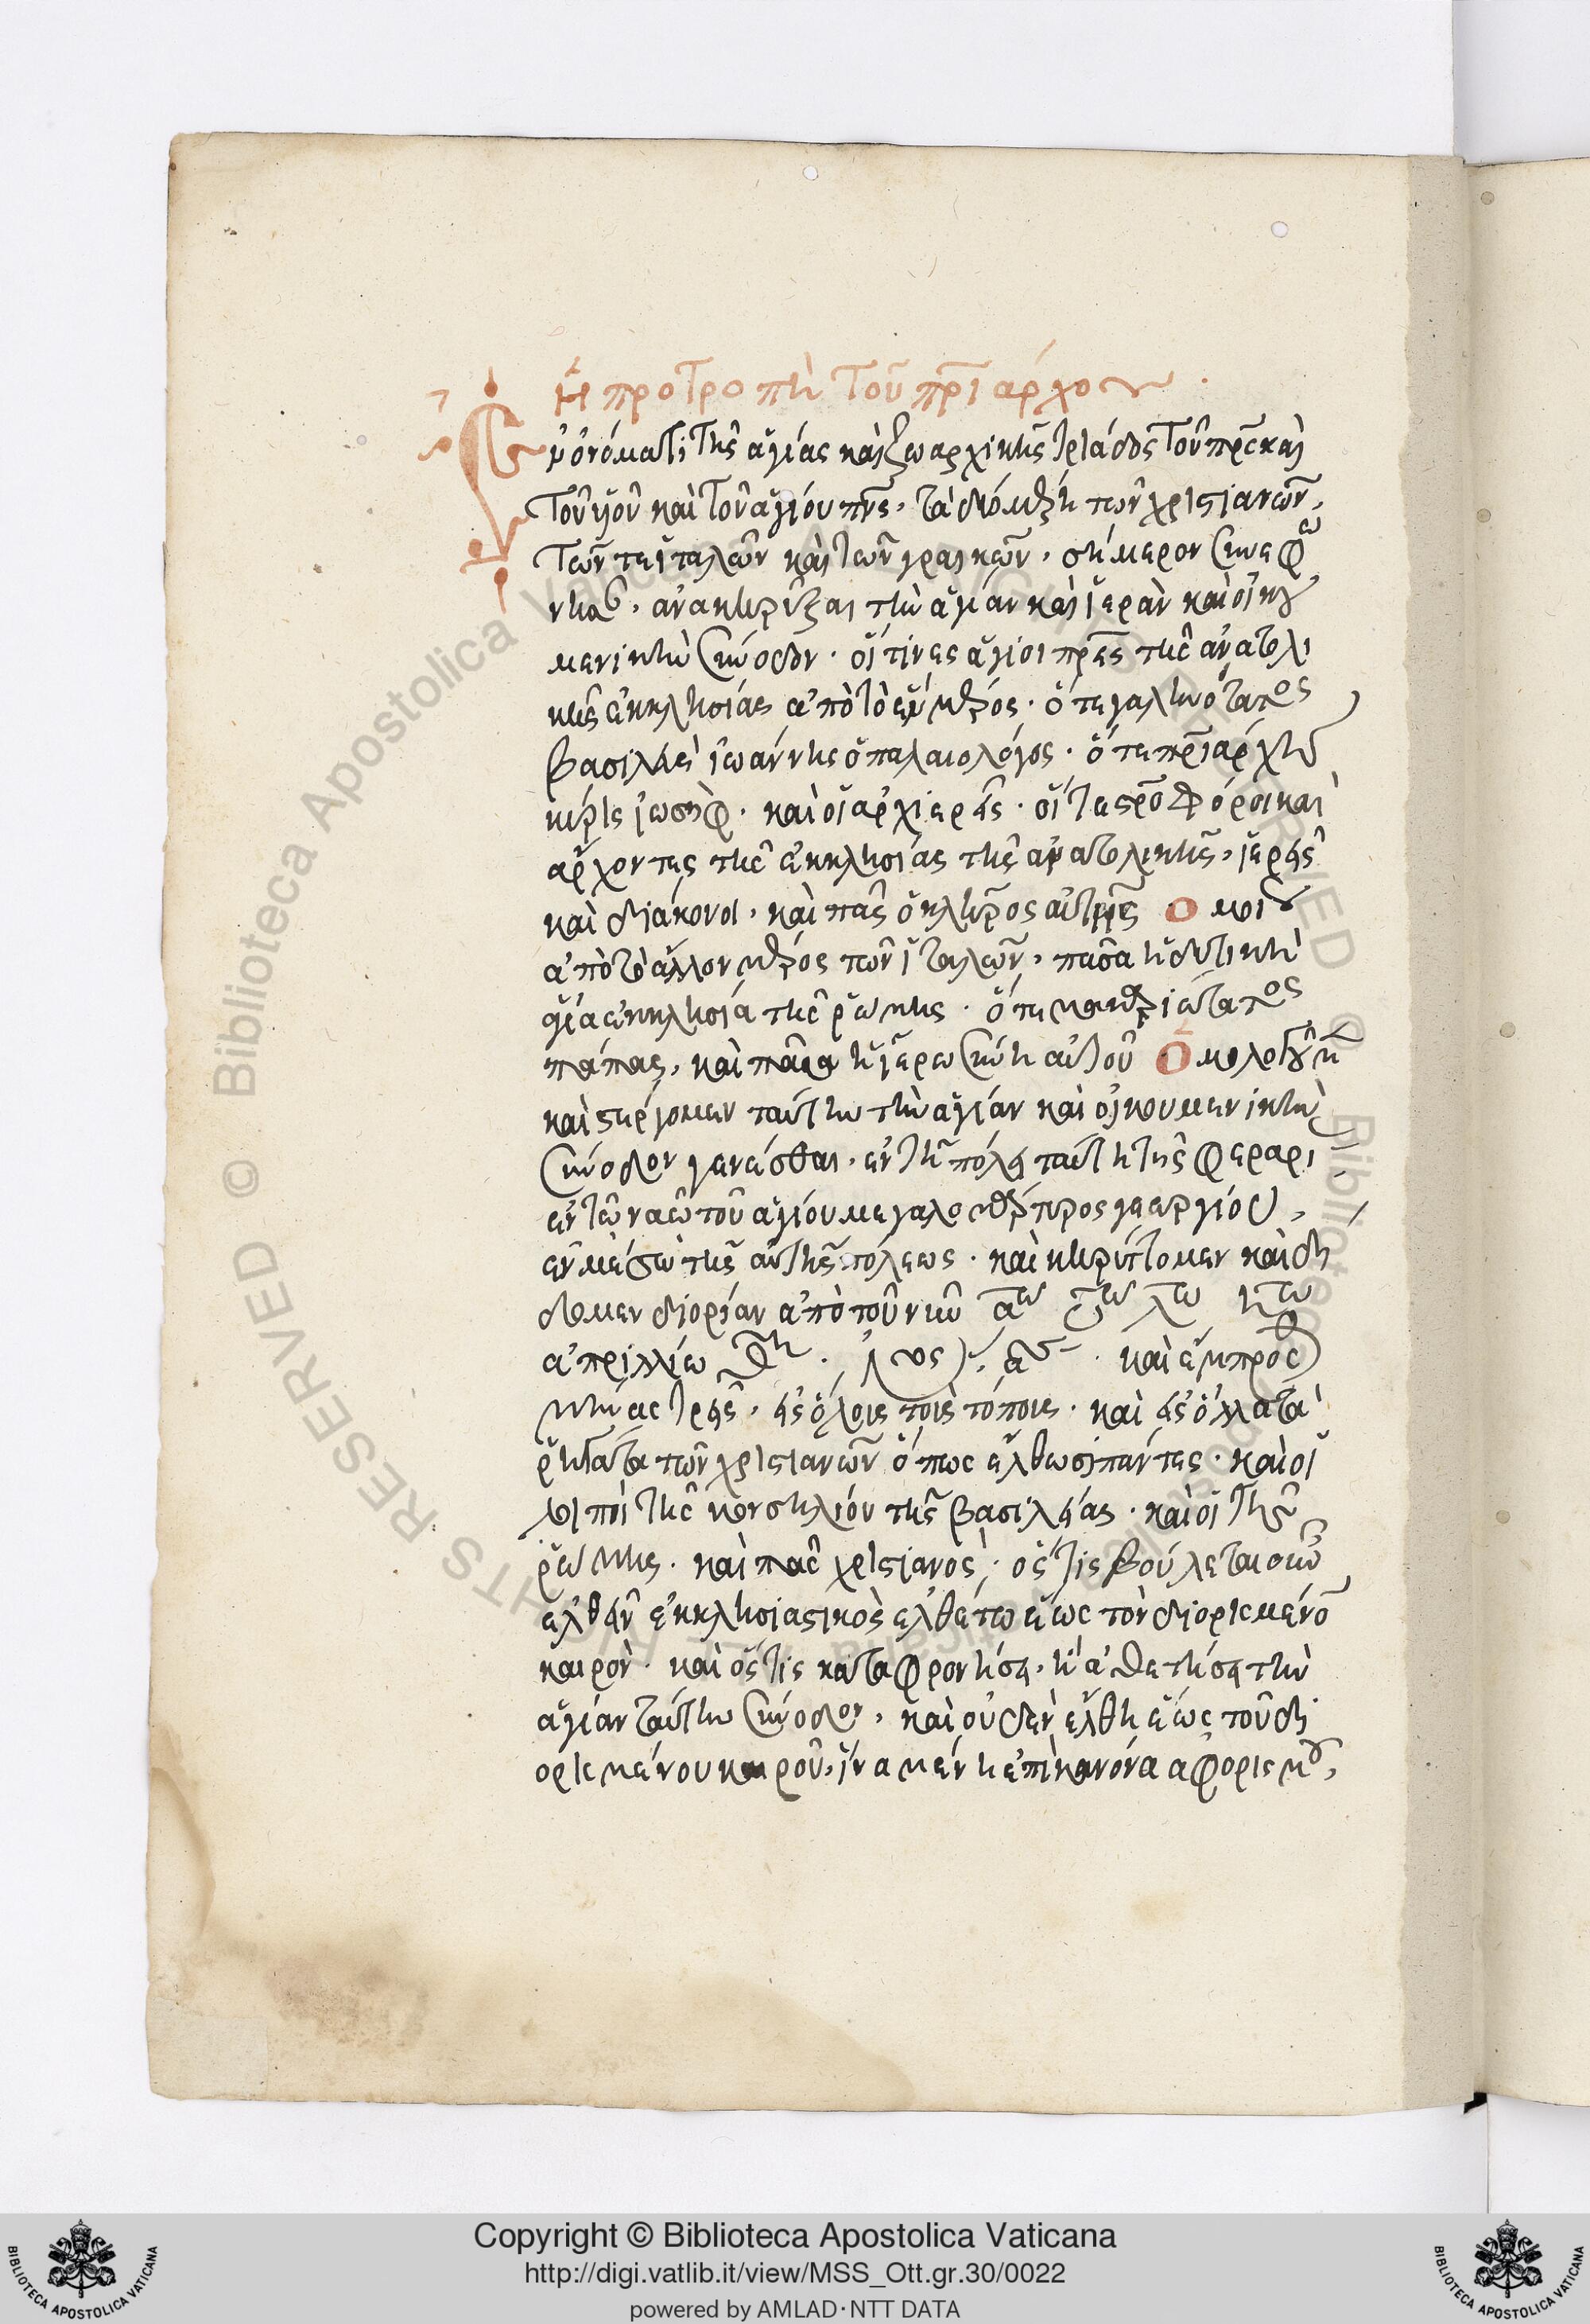 ἡ προτροπὴ τοῦ πρι̅αρχου.
Ἐν ὀνόματι τῆς ἁγίας καὶ ζωαρχικῆς τριάδος τοῦ πρ̅ς καὶ
τοῦ υἱοῦ καὶ τοῦ ἁγίου πν̅ς, τὰ δύο μέρη τῶν χριστιανῶν,
τῶν τε ἰταλῶν καὶ τῶν γραικῶν, σήμερον συνεφω
νησα, ἀνακηρύξαι τὴν ἁγίαν καὶ ἱερὰν καὶ οἰκου
μενικὴν σύνοδον. οἵτινες ἅγιοι πρ̅ες τῆς ἀνατολι
κῆς ἐκκλησίας ἀπὸ τὸ ἓν μέρος. ὅ τε γαληνότατος
βασιλεὺς ἰωάννης ὁ παλαιολόγος. ὅ τε πρι̅άρχης
κύρις ἰωσὴφ. καὶ οἱ ἀρχιερεῖς. οἵ τε στ̅ροφόροι καὶ
ἄρχοντες τῆς ἐκκλησίας τῆς ἀνατολικῆς, ἱερεῖς
καὶ διάκονοι, καὶ πᾶς ὁ κλῆρος αὐτῆς ὁμοίως
ἀπὸ τὸ ἄλλον μέρος τῶν ἰταλῶν, πᾶσα ἡ δυτικὴ
ἁγία ἐκκλησία τῆς ῥώμης. ὅ τε μακαριώτατος
πάπας, καὶ πᾶσα ἡ ἱερωσύνη αὐτοῦ Ὁμολογοῦμεν
καὶ στέργομεν ταύτην τὴν ἁγίαν καὶ οἰκουμενικὴν
σύνοδον γενέσθαι, ἐν τῇ πόλει ταύτη τῆς φεραρι
ἐν τῶ ναῶ τοῦ ἁγίου μεγαλομάρτυρος γεωργίου,
ἐν μέσω τῆς αὐτῆς πόλεως. καὶ κηρύττομεν καὶ δί
δομεν διορίαν ἀπὸ τοῦ νῦν
ἀπριλλίω καὶ ἔμπροσθ
μῆνας τρεῖς, εἰς ὅλοις τοῖς τόποις. καὶ εἰς ὅλλα τὰ
ῥηγάτα τῶν χριστιανῶν ὅπως ἔλθωσι πάντες. καὶ οἱ
λιποὶ τῆς κονσηλίου τῆς βασιλείας. καὶ οἱ τῆς
ῥώμης. καὶ πᾶς χριστιανὸς. ὅστις βούλεται συν
ελθεῖν ἐκκλησιαστικὸς ἐλθέτω ἕως τὸν διορισμένον
καιρὸν. καὶ ὅστις καταφρονήσει, ἢ ἀθετήσει τὴν
ἁγίαν ταύτην σύνοδον, καὶ οὐδὲν ἔλθη ἕως τοῦ δι
ορισμένου καιροῦ, ἵνα μένη ἐπὶ κανόνα ἀφορισμοῦ,
Copyright © Biblioteca Apostolica Vaticana
http://digi.vatlib.it/view/MSS_Ott.gr.30/0022
powered by AMLAD·NTT DATA